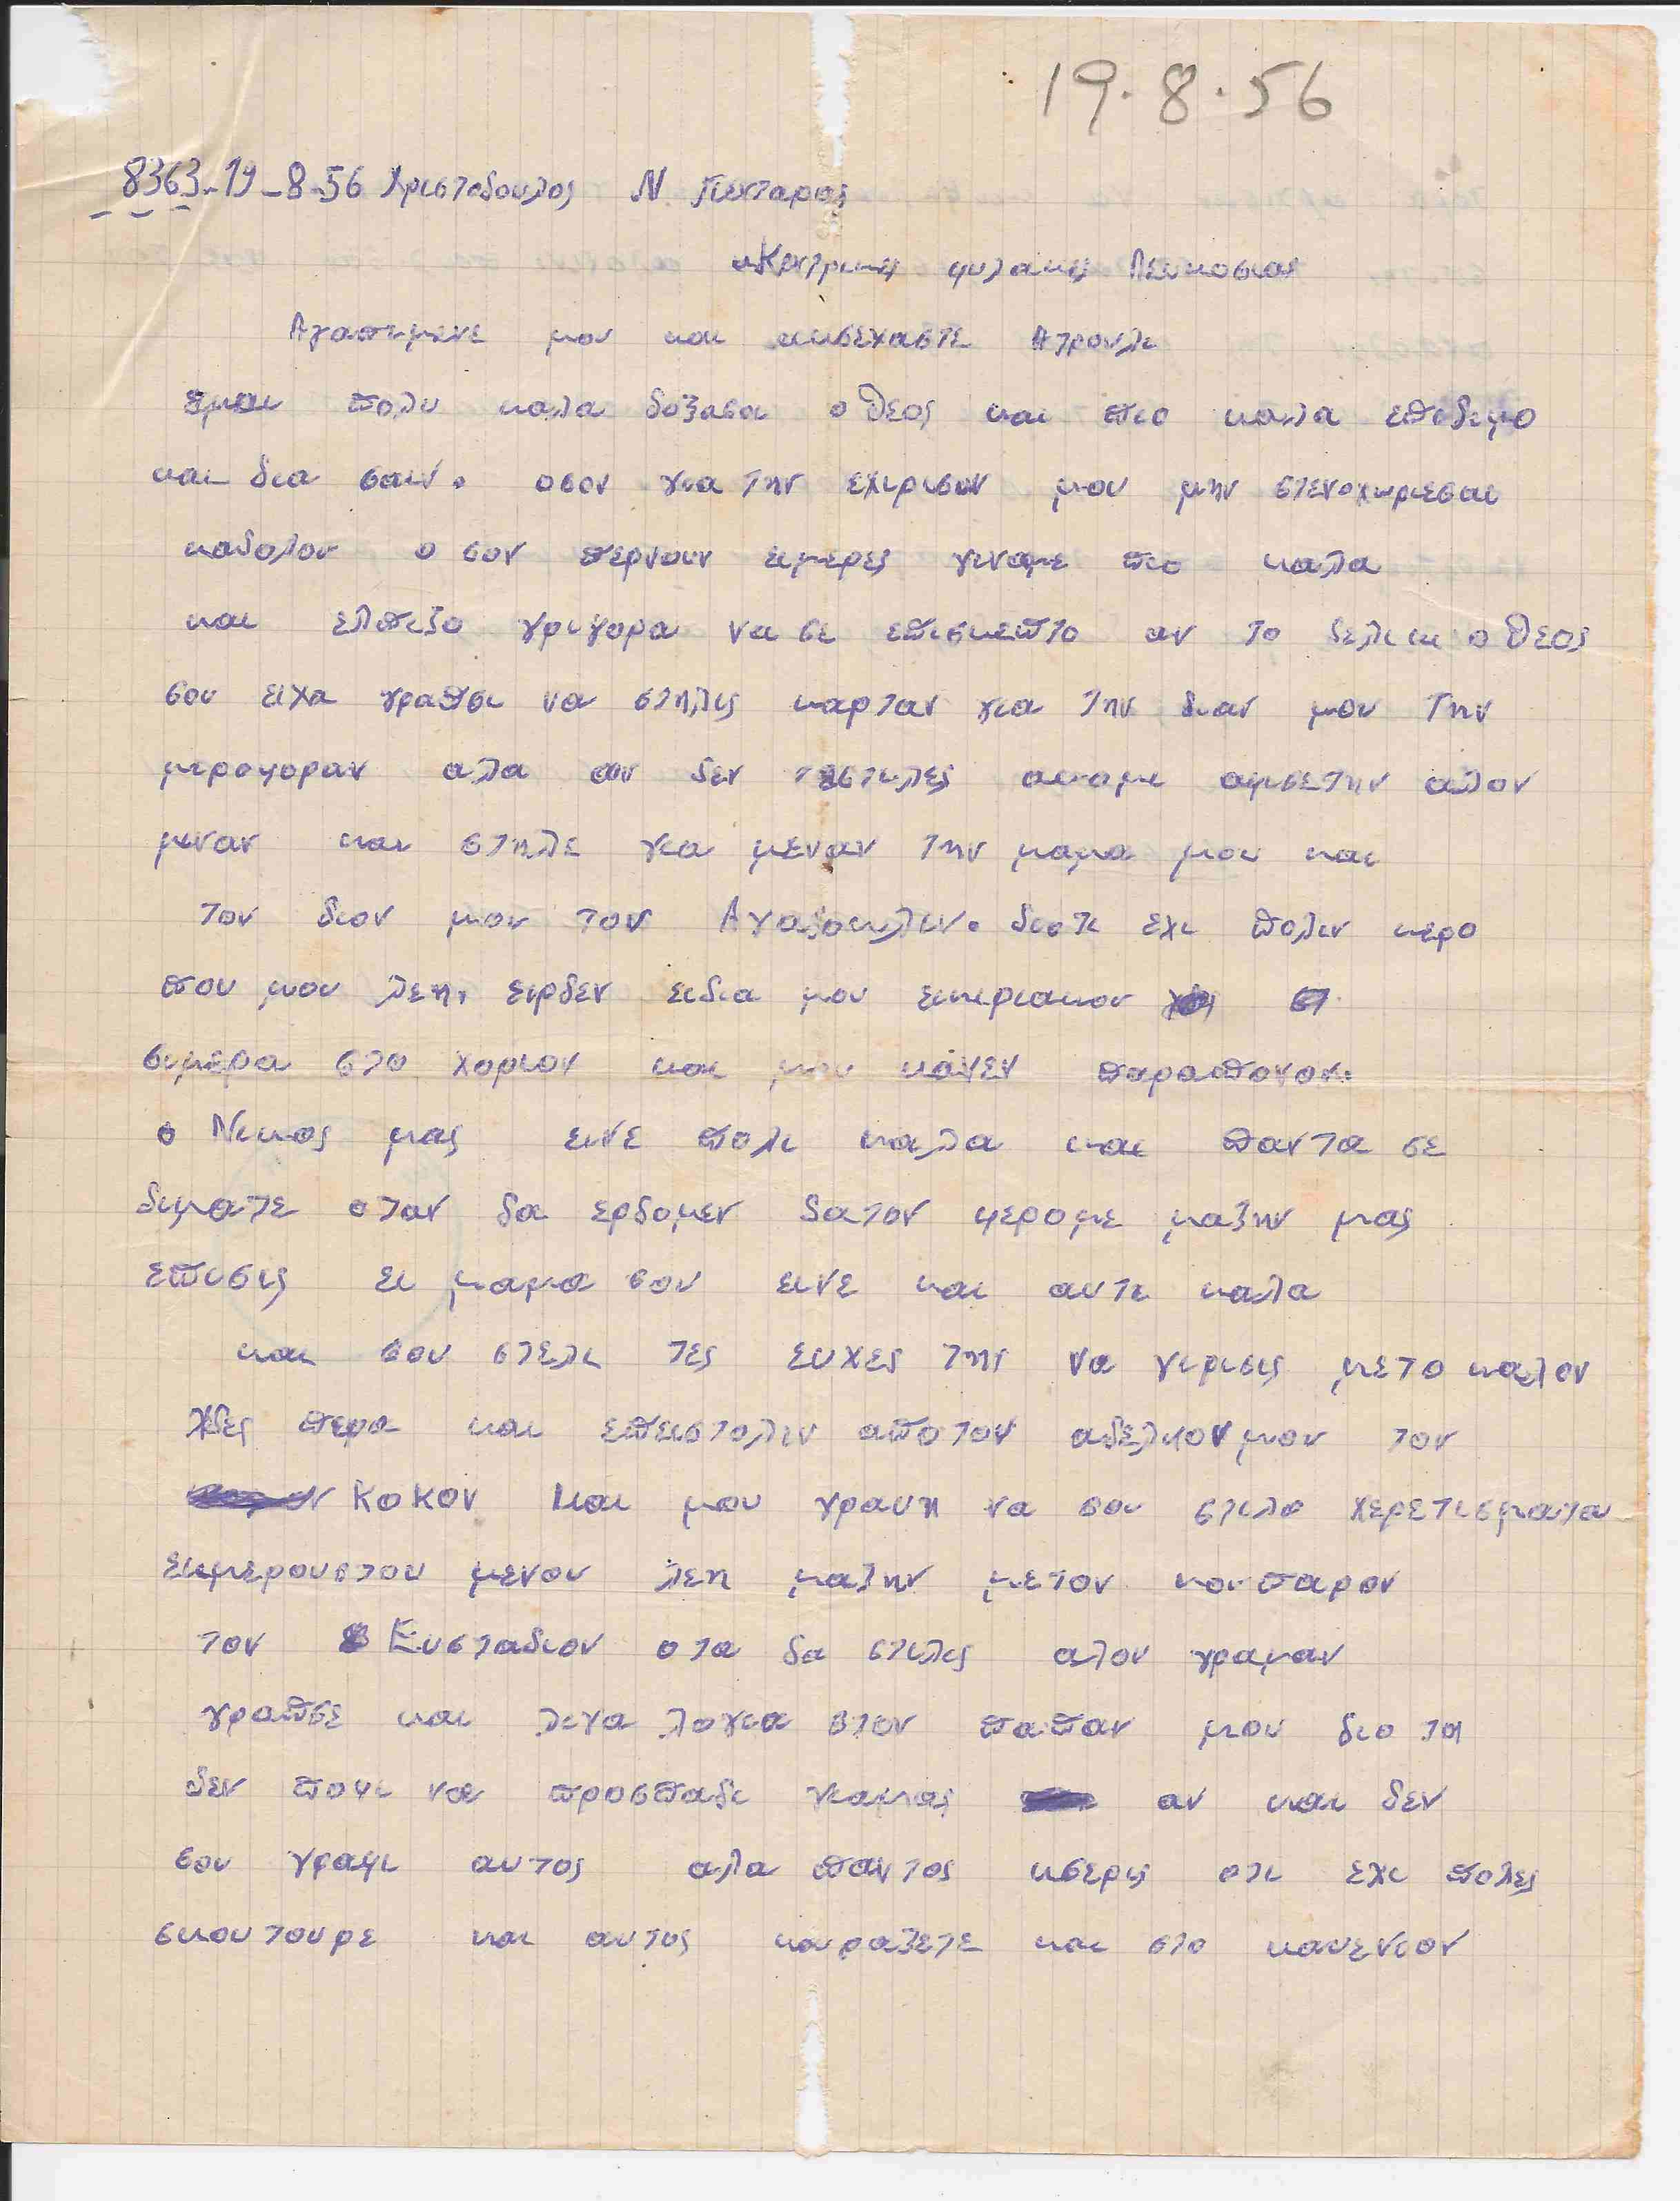 19.8.56
8363-19-8-56 Χριστοδουλος Ν
Κεντρικες φυλακες Λευκοσιας
Αγαπιμενε μου και Ατρουλι
πολυ καλα δοξασι ο θεος και πιο καλα επιθιμο
και δια σαιν. οσον για την εχιρισιν μου μην στενοχωριεσαι
καθολου ο σον περνουν ειμερες γιναμε πιο καλα
και ελπιζο γριγορα να σε επισκεπτο αν το θελι κι ο θεος
σου ειχα γραπσι να στηλις καρταν για την θιαν μου την
μιροφοραν αλα αν δεν αυτιν αλον
μιναν και στηλε για μεναν την μαμα μου και
τον θιον μου τον Αγαθοκλιν. διοτι εχι πολιν κερο
που μου λεη, ειρθεν ειθια μου εικιριακου
σιμερα στο χοριον και μου κανεν παραπονον.
ο Νικος μας εινε πολι καλα και παντα σε
θιματε οταν θα ερθομεν θατον φερομε μαζην μας
επισις ει μαμα σου εινε και αυτι καλα
και σου στελι τες ευχες της να γιρισις με το καλον
περα και επειστολιν απο τον αδελφον μου τον
Κοκον και μου γραφη να σου στιλο χερετισματα
εκμερουστου μενου λεη μαζην μετον κουπαρον
τον Ευσταθιον οτα θα στιλις αλον γραμαν
γραπσε και λιγα λογια στον παπαν μου διο τη
δεν ποφι να προσπαθι γιαμας αν και δεν
σου γραφι αυτος αλα παντος κσερις οτι εχι πολες
σκοτουρε και αυτος κουραζετε και στο καφενιον